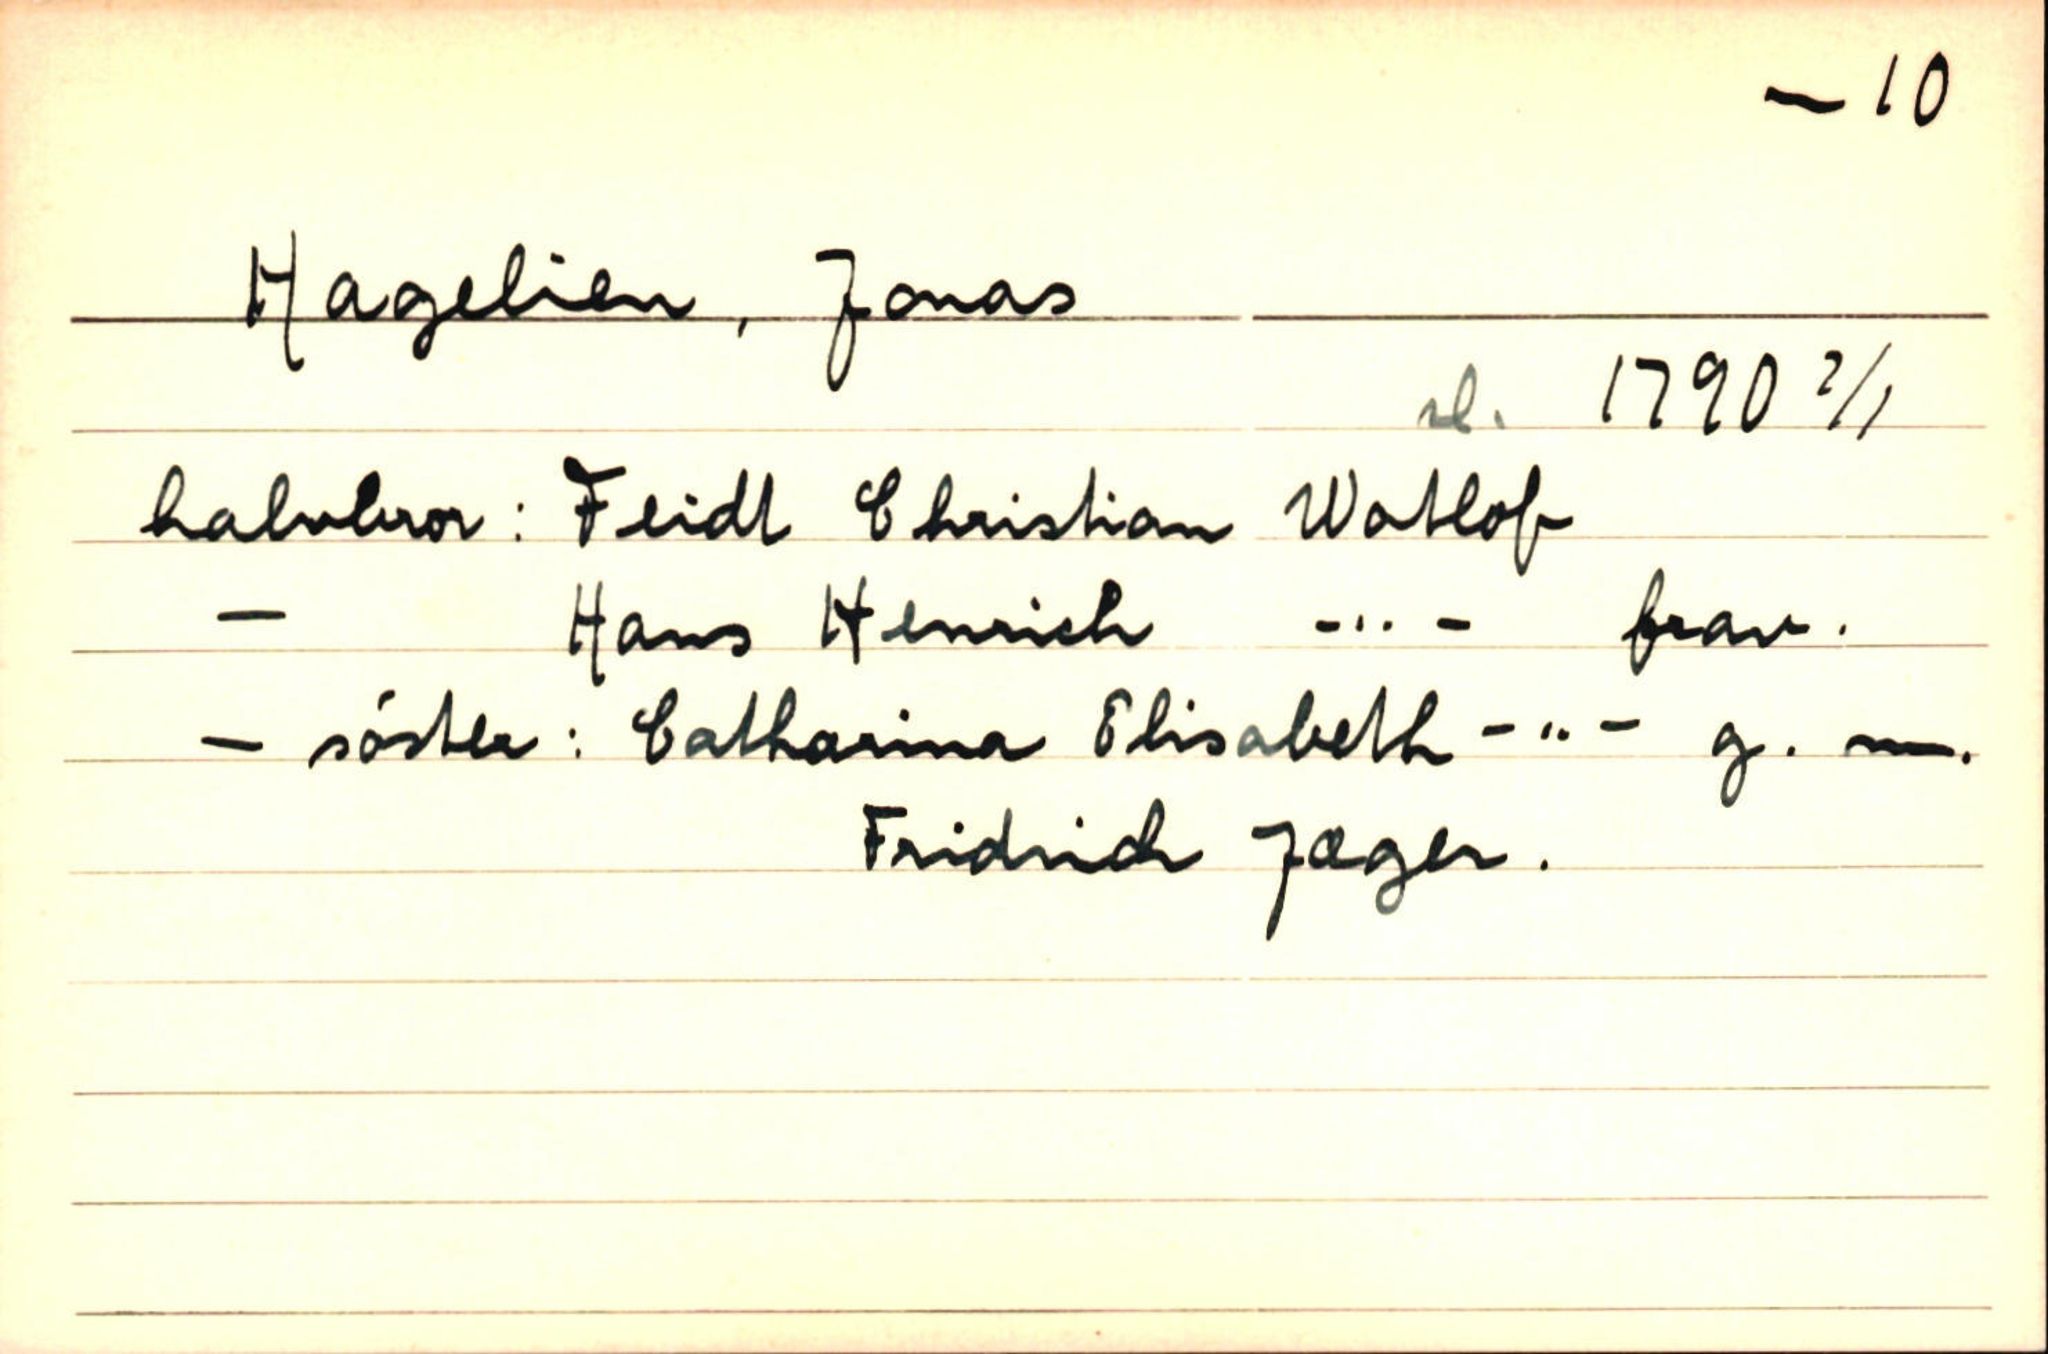 – 10
Hagelien, Jonas
sl. 1790 2/1
halvbror: Feidt Christian Watlof
– Hans Henrich - " - frav.
– søster: Catharina Elisabeth - " - g. m.
Fridrich Jæger.